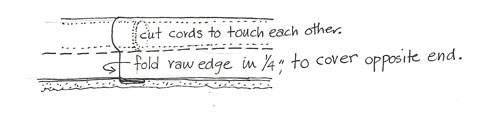 cut cords to touch each other.
fold raw edge in ¼", to cover opposite end.